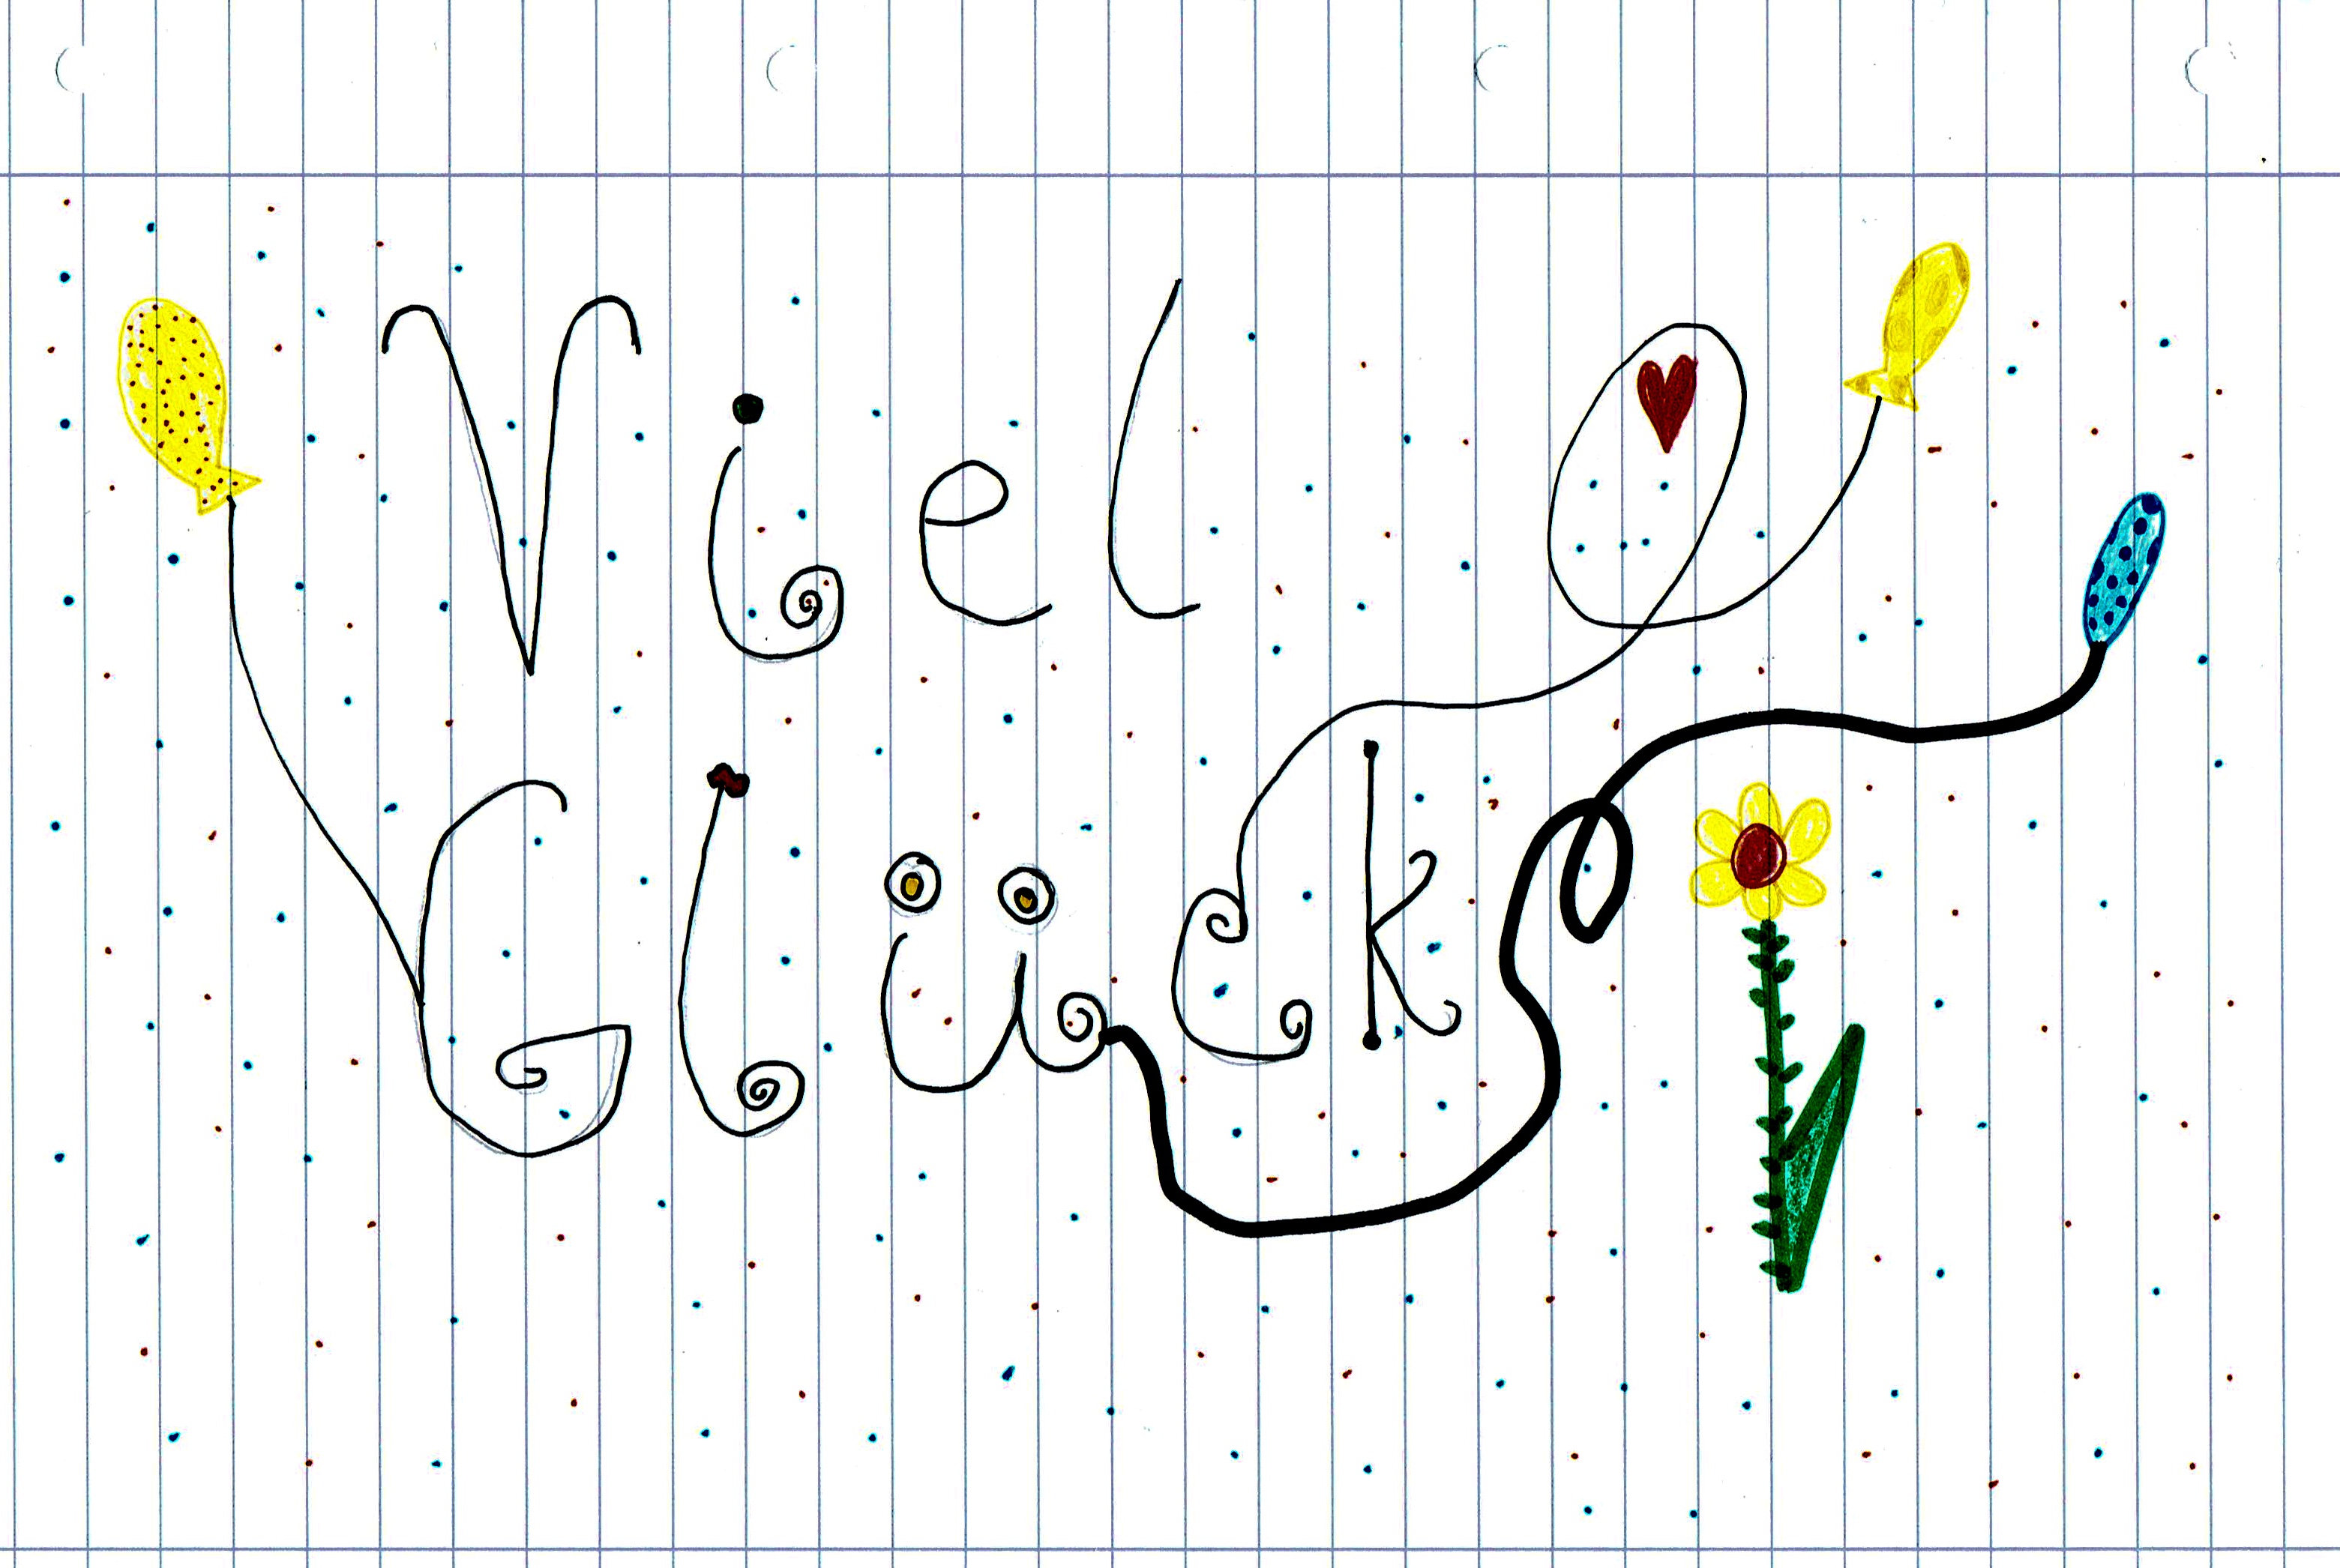 Viel
Glück